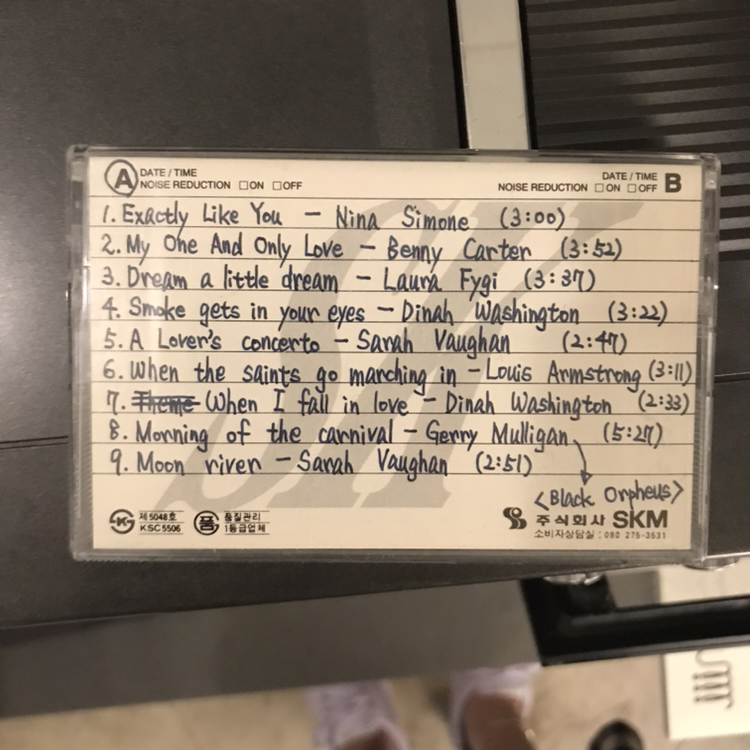 A DATE / TIME
NOISE REDUCTION □ON □OFF
DATE / TIME B
NOISE REDUCTION □ON □OFF
1. Exactly Like You - Nina Simone (3:00)
2. My One And Only Love - Benny Carter (3:52)
3. Dream a little dream - Laura Fygi (3:37)
4. Smoke gets in your eyes - Dinah Washington (3:22)
5. A Lover's concerto - Sarah Vaughan (2:47)
6. When the saints go marching in - Louis Armstrong (3:11)
7. Theme When I fall in love - Dinah Washington (2:33)
8. Morning of the carnival - Gerry Mulligan (5:27)
9. Moon river - Sarah Vaughan (2:51)
<Black Orpheus>
제5048호
KSC5506
품
품질관리
1등급업체
주식회사 SKM
소비자상담실 : 080 275-3531